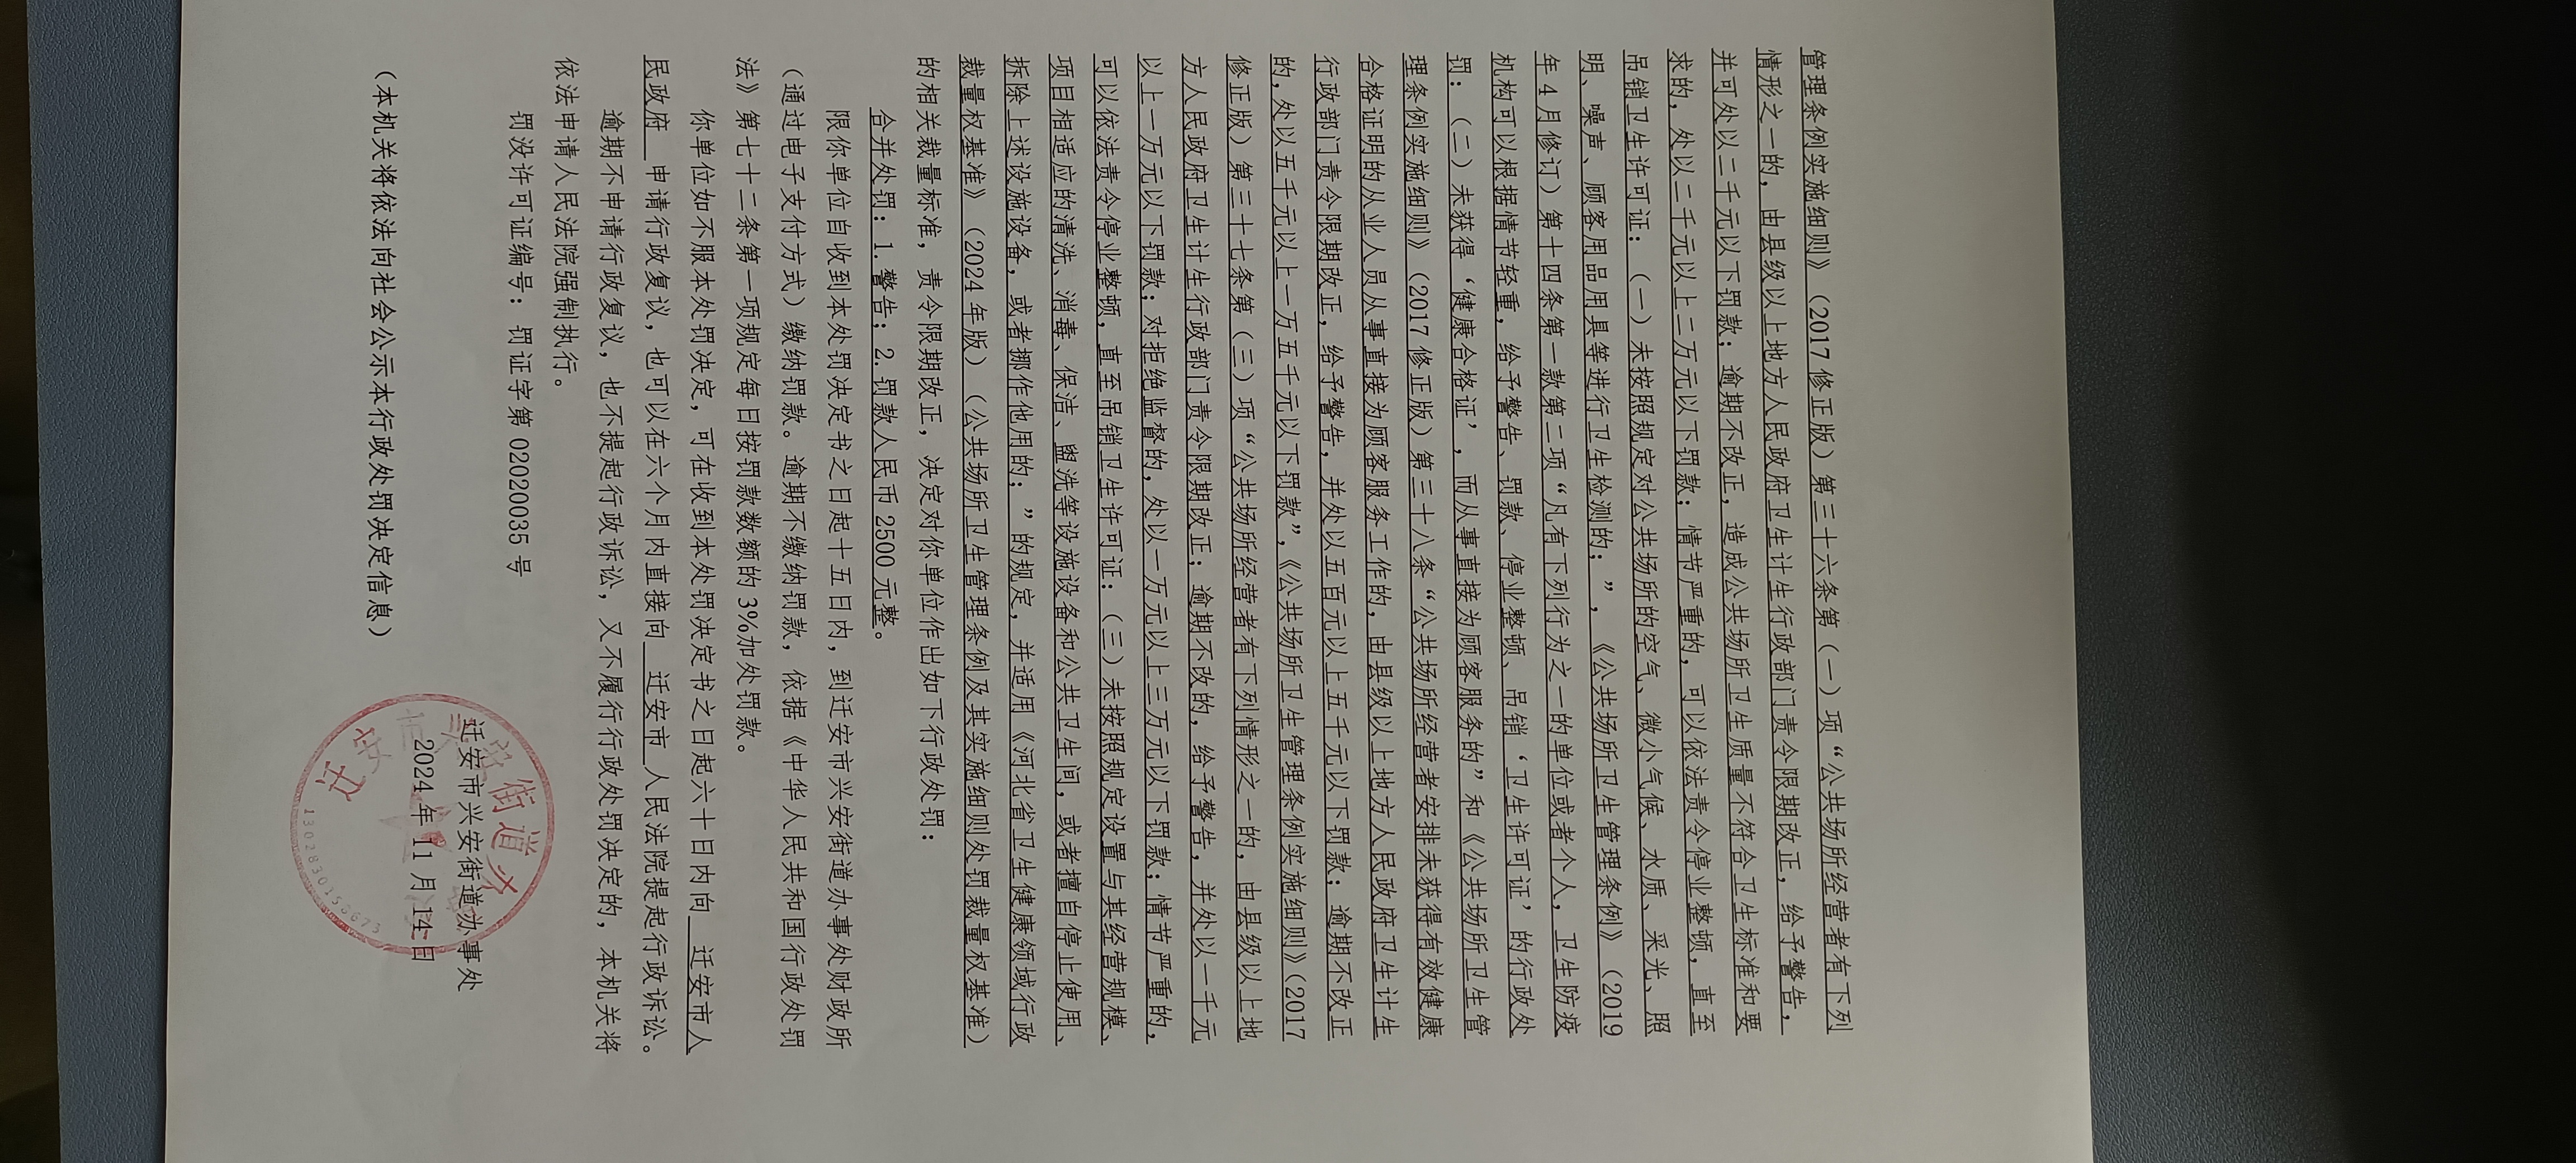 管理条例实施细则》（2017修正版）第三十六条第（一）项“公共场所经营者有下列
情形之一的，由县级以上地方人民政府卫生计生行政部门责令限期改正，给予警告，
并可处以二千元以下罚款；逾期不改正，造成公共场所卫生质量不符合卫生标准和要
求的，处以二千元以上二万元以下罚款；情节严重的，可以依法责令停业整顿，直至
吊销卫生许可证：（一）未按照规定对公共场所的空气、微小气候、水质、采光、照
明、噪声、顾客用品用具等进行卫生检测的；”，《公共场所卫生管理条例》（2019
年4月修订）第十四条第一款第二项“凡有下列行为之一的单位或者个人，卫生防疫
机构可以根据情节轻重，给予警告、罚款、停业整顿、吊销‘卫生许可证’的行政处
罚：（二）未获得‘健康合格证’，而从事直接为顾客服务的”和《公共场所卫生管
理条例实施细则》（2017修正版）第三十八条“公共场所经营者安排未获得有效健康
合格证明的从业人员从事直接为顾客服务工作的，由县级以上地方人民政府卫生计生
行政部门责令限期改正，给予警告，并处以五百元以上五千元以下罚款；逾期不改正
的，处以五千元以上一万五千元以下罚款”，《公共场所卫生管理条例实施细则》（2017
修正版）第三十七条第（三）项“公共场所经营者有下列情形之一的，由县级以上地
方人民政府卫生计生行政部门责令限期改正；逾期不改的，给予警告，并处以一千元
以上一万元以下罚款；对拒绝监督的，处以一万元以上三万元以下罚款；情节严重的，
可以依法责令停业整顿，直至吊销卫生许可证：（三）未按照规定设置与其经营规模、
项目相适应的清洗、消毒、保洁、盥洗等设施设备和公共卫生间，或者擅自停止使用、
拆除上述设施设备，或者挪作他用的；”的规定，并适用《河北省卫生健康领域行政
裁量权基准》（2024年版）（公共场所卫生管理条例及其实施细则处罚裁量权基准）
的相关裁量标准，责令限期改正，决定对你单位作出如下行政处罚：
合并处罚：1.警告；2.罚款人民币2500元整。
限你单位自收到本处罚决定书之日起十五日内，到迁安市兴安街道办事处财政所
（通过电子支付方式）缴纳罚款。逾期不缴纳罚款，依据《中华人民共和国行政处罚
法》第七十二条第一项规定每日按罚款数额的3%加处罚款。
你单位如不服本处罚决定，可在收到本处罚决定书之日起六十日内向 迁安市人
民政府 申请行政复议，也可以在六个月内直接向 迁安市 人民法院提起行政诉讼。
逾期不申请行政复议，也不提起行政诉讼，又不履行行政处罚决定的，本机关将
依法申请人民法院强制执行。
罚没许可证编号：罚证字第02020035号
迁安市兴安街道办事处
2024年11月14日
（本机关将依法向社会公示本行政处罚决定信息）